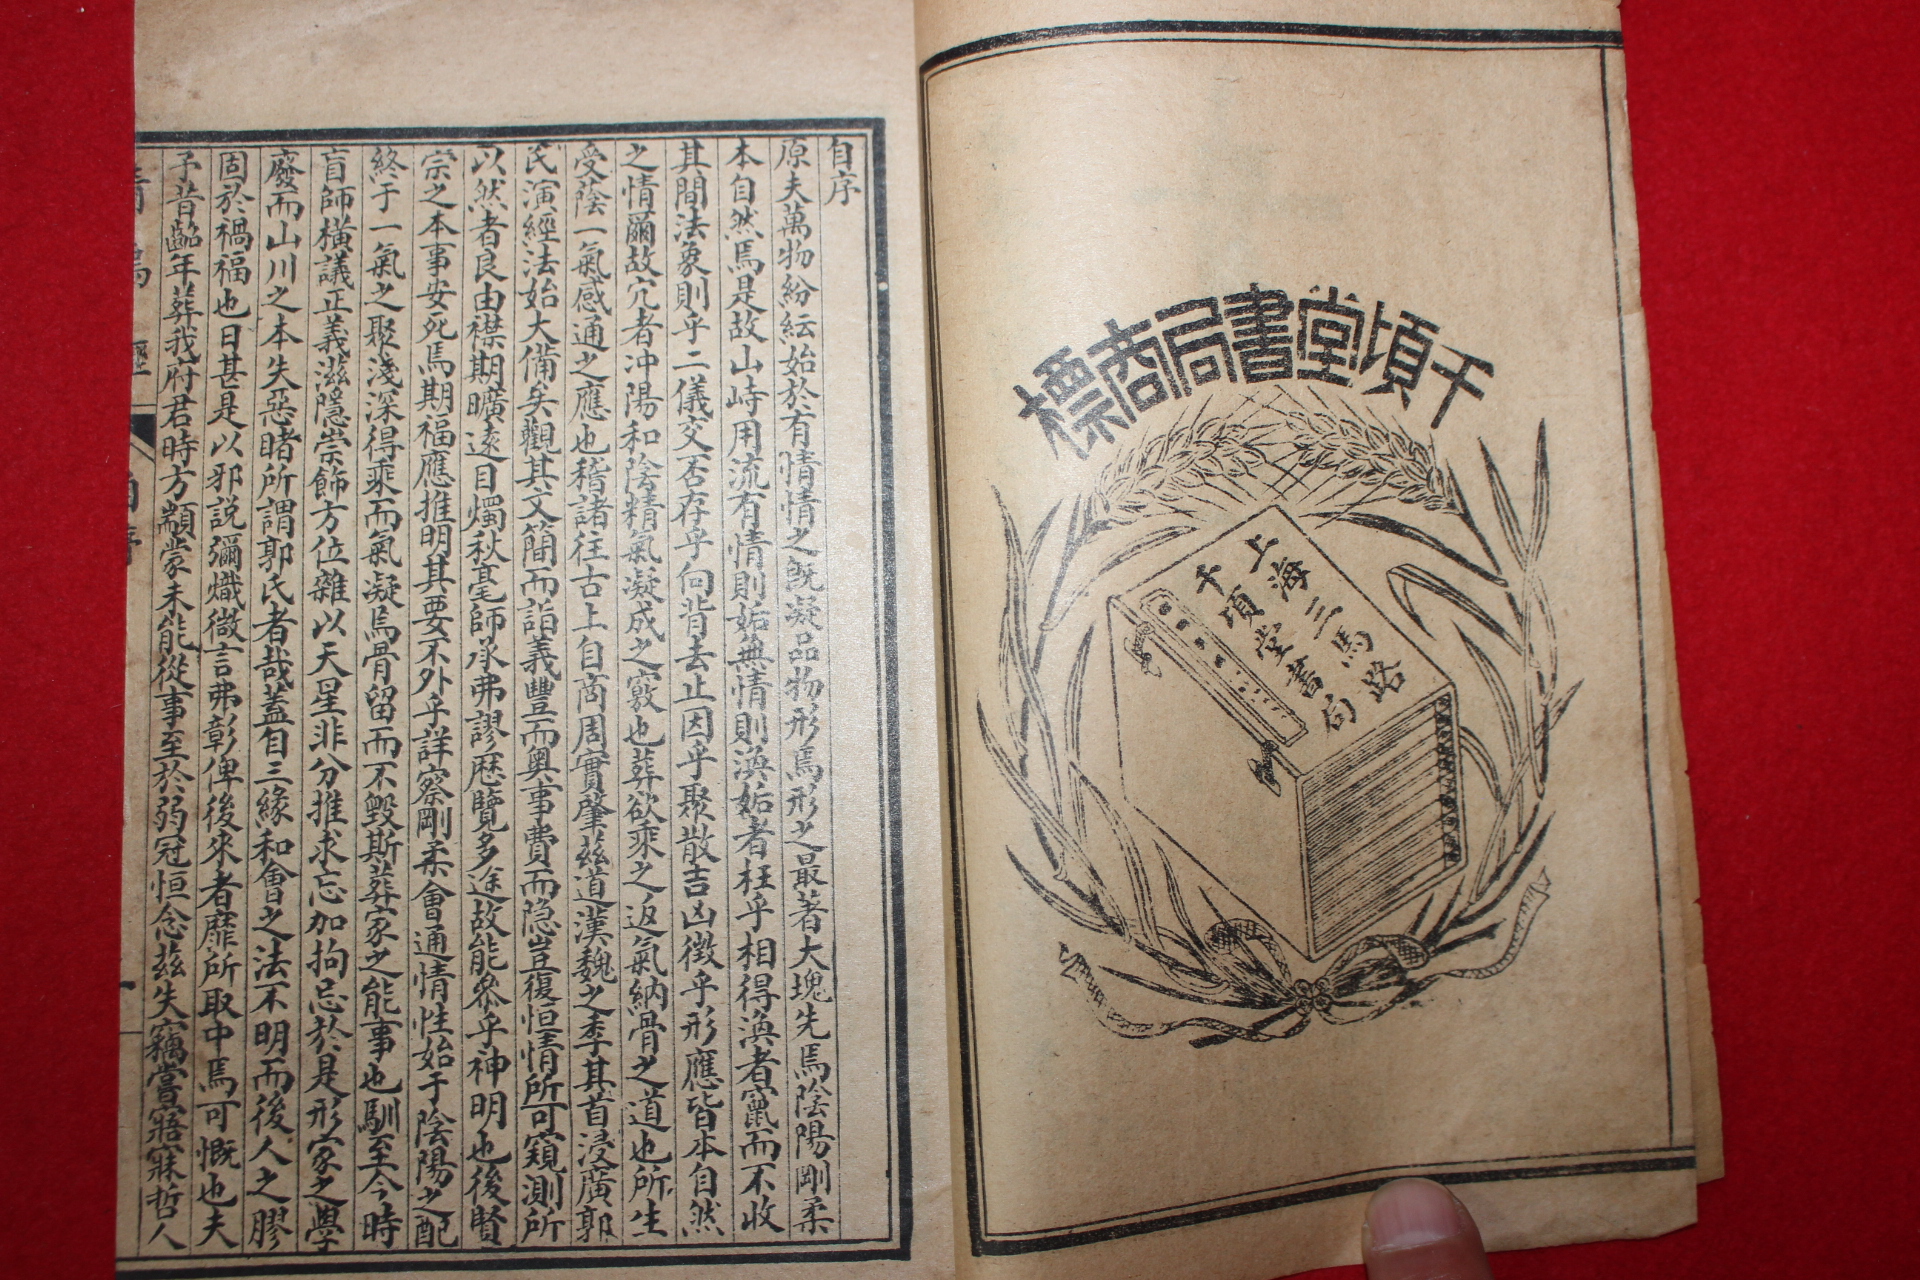 千頃堂書局商標
上海三馬路
千頃堂書局
自序
原夫萬物紛紜始於有情情之旣凝品物形焉形之最著大塊先焉陰陽剛柔
本自然焉是故山峙用流有情則姤無情則渙姤者枉乎相得渙者竄而不收
其間法象則乎二儀交否存乎向背去止因乎聚散吉凶徵乎形應皆本自然
之情爾故穴者冲陽和陰精氣凝成之竅也葬欲乘之返氣納骨之道也所生
受蔭一氣感通之應也稽諸往古上自商周實肇茲道漢魏之季其首浸廣郭
氏演經法始大備矣觀其文簡而詣義豐而奧事費而隐豈復恒情所可窺測所
以然者良由襟期曠遠目燭秋毫師承弗謬歷覽多途故能叅乎神明也後賢
宗之本事安死焉期福應推明其要不外乎詳察剛柔會通情性始于陰陽之配
終于一氣之聚淺深得乘而氣凝焉骨留而不毀斯葬家之能事也馴至今時
盲師橫議正義滋隱崇飾方位雜以天星非分推求忘加拘忌於是形家之學
廢而山川之本失惡睹所謂郭氏者哉蓋自三緣和會之法不明而後人之膠
固於禍福也日甚是以邪說彌熾微言弗彰俾後來者靡所取中焉可慨也夫
予昔齠年葬我府君時方顓蒙未能從事至於弱冠恒念茲失竊嘗寤寐哲人